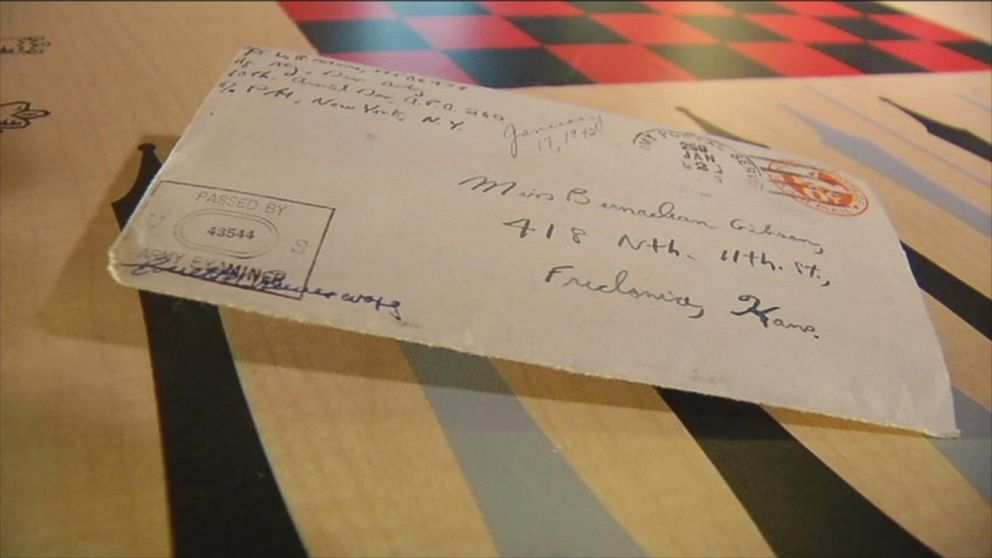 10th. Armd. Div. A.P.O. 260
c/o P.M., New York, N.Y.
January
17, 1945
JAN
2
Miss Bernadean Gibson,
418 Nth. 11th. St.,
Fredonia, Kans.
PASSED BY
U 43544 S
ARMY EXAMINER